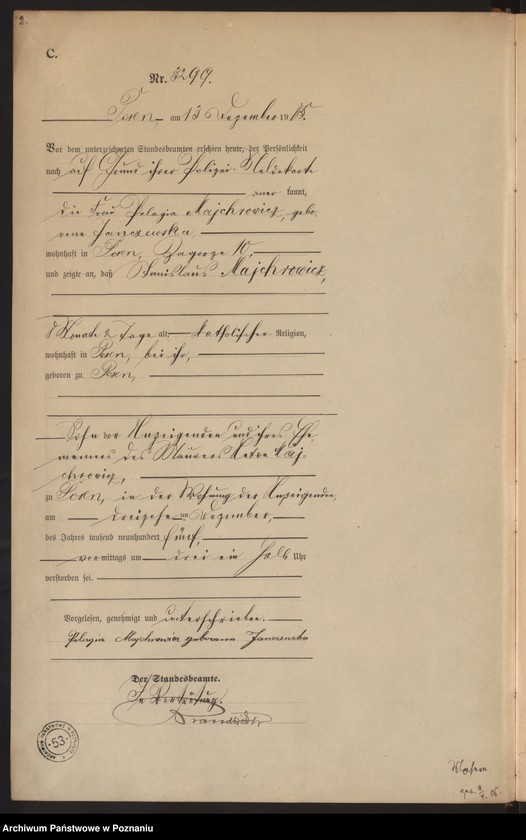 2.
C.
Nr. 3299.
Posen, am 13 Dezember 1905.
Vor dem unterzeichneten Standesbeamten erschien heute, der Persönlichkeit
nach auf Grund ihrer Polizei Meldekarte
aner kannt,
die Frau Pelagia Majchrowicz, gebo-
rene Janczewska
wohnhaft in Posen, Zagorze 10,
und zeigte an, daß Stanislaus Majchrowicz,
8 Monate 2 Tage alt, katholischer Religion,
wohnhaft in Posen, bei ihr,
geboren zu Posen,
Sohn der Anzeigenden und ihres Ehe-
mannes des Maurers Maj-
chrowicz,
zu Posen, in der Wohnung der Anzeigenden,
am dreizehnten Dezember,
des Jahres tausend neunhundert fünf,
vormittags um drei ein halb Uhr
verstorben sei.
Vorgelesen, genehmigt und unterschrieben.
Pelagia Majchrowicz geborene Janczewska
Der Standesbeamte.
In Vertretung.
ARCHIWUM PAŃSTWOWE W POZNANIU
53
Archiwum Państwowe w Poznaniu